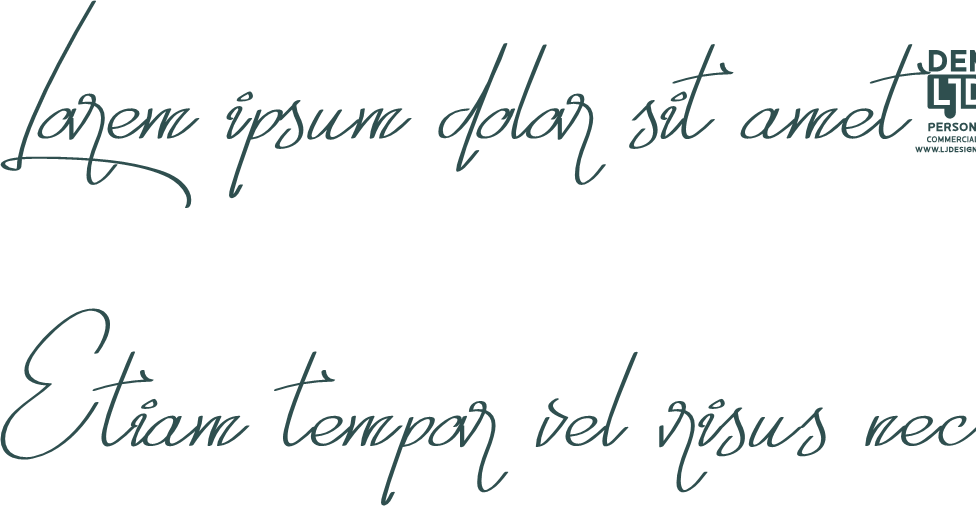 Lorem ipsum dolor sit amet
DEM
LJD
PERSON
COMMERCIAL
WWW.LJDESIGN
Etiam tempor vel risus nec